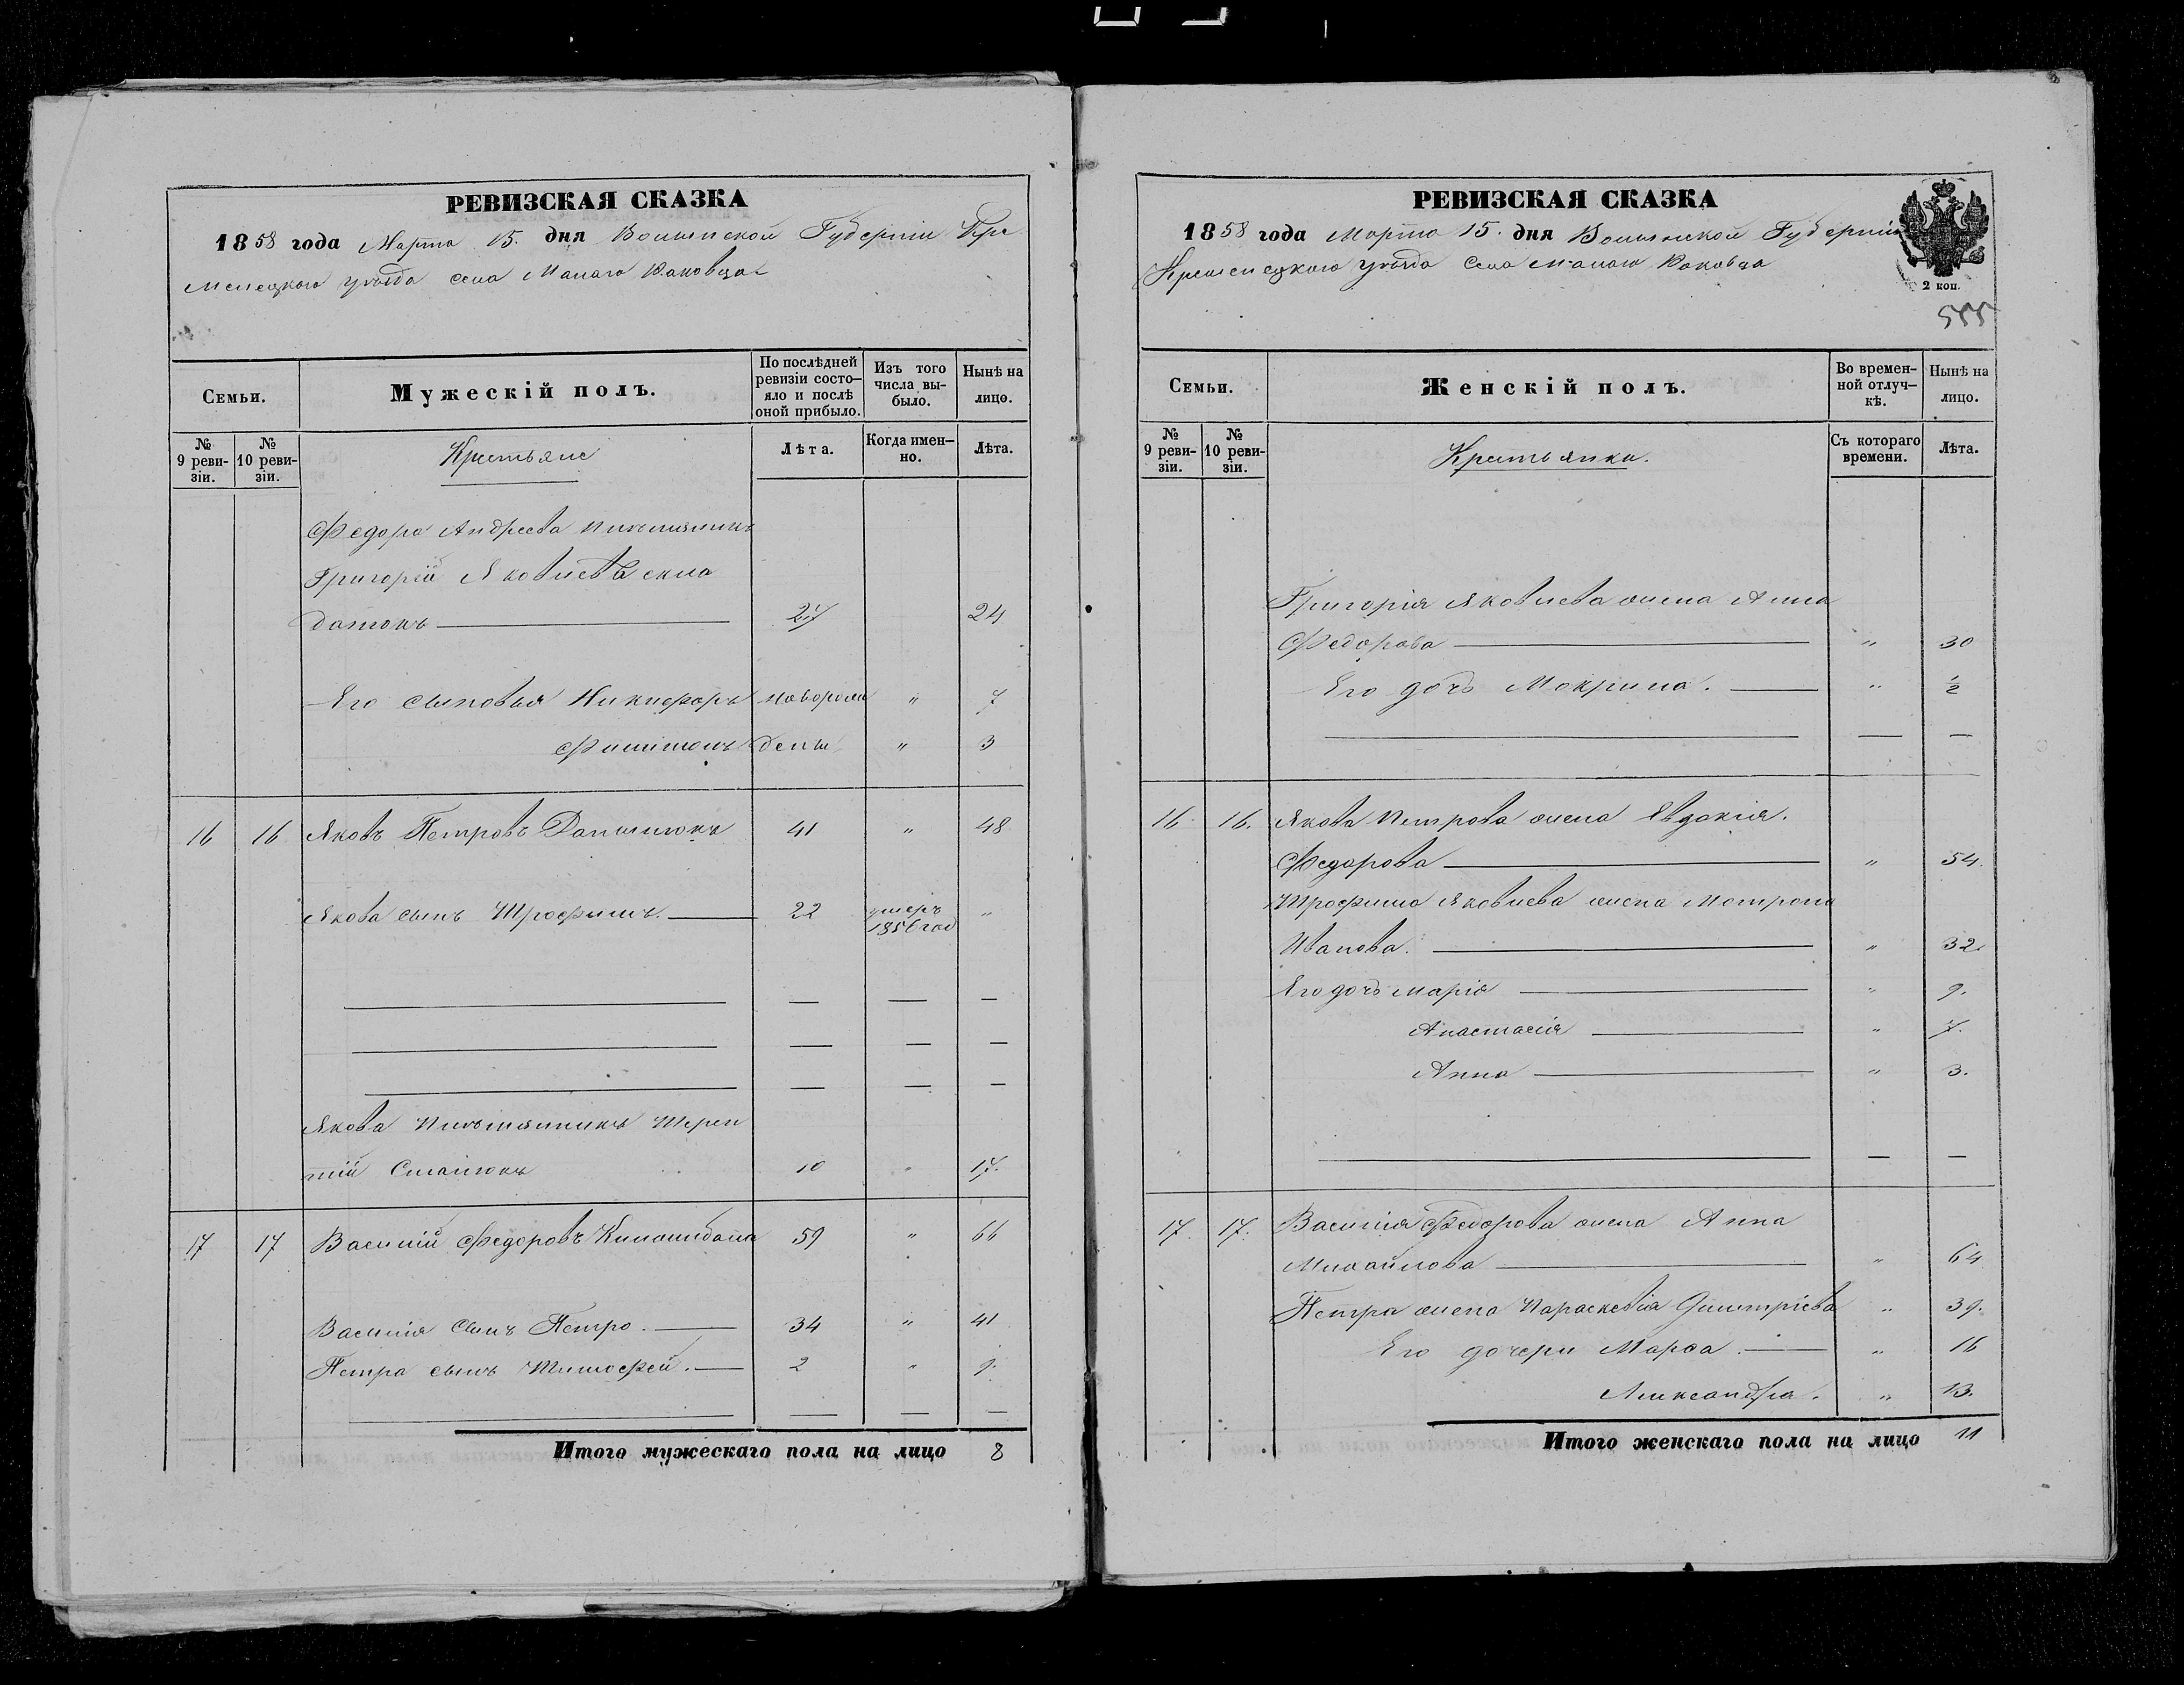 РЕВИЗСКАЯ СКАЗКА
1858 года Марта 15. дня Волынской Губерніи Кре
менецкаго уѣзда села Малаго Каковца
Семьи.
Мужескій полъ.
По послѣдней ревизіи состо- яло и послѣ оной прибыло.
Изъ того числа вы- было.
Нынѣ на лицо.
№ 9 реви- зіи.
№ 10 реви- зіи.
Крестьяне
Лѣта.
Когда имен- но.
Лѣта.
Федора Андреева племянникъ
Григорій Яковлевъ
24
Его сыновья Никифоръ новорож " 7
денъ " 3
16 16 Яковъ Петровъ Данилюкъ 41 " 48
Якова сынъ Трофимъ. 22 умеръ 1856 год "
Якова племянникъ Терен
тій 10 " 17.
17 17 Василій Федоровъ 59 " 66
Василія сынъ Петро. 34 " 41
Петра сынъ Тимофей. 2 " 9.
Итого мужескаго пола на лицо 8
РЕВИЗСКАЯ СКАЗКА
1858 года Марта 15. дня Волынской Губерніи
Кременецкаго уѣзда села Малаго Каковца
2 коп.
555
Семьи.
Женскій полъ.
Во времен- ной отлуч- кѣ.
Нынѣ на лицо.
№ 9 реви- зіи.
№ 10 реви- зіи.
Крестьянки.
Съ котораго времени.
Лѣта.
Григорія Яковлева жена Анна
Федорова " 30
Его дочь Мокрина. " ½
16 16. Якова Петрова жена Явдокія.
Федорова " 54.
Трофима Яковлева жена Мотрона
Иванова. " 32.
Его дочь Марія " 9.
Анастасія " 7.
Анна " 3.
17. 17. Василія Федорова жена Анна
Михайлова " 64
Петра жена Параскевія Дмитріева " 39.
Его дочери Марѳа. " 16
Александра. " 13.
Итого женскаго пола на лицо 11